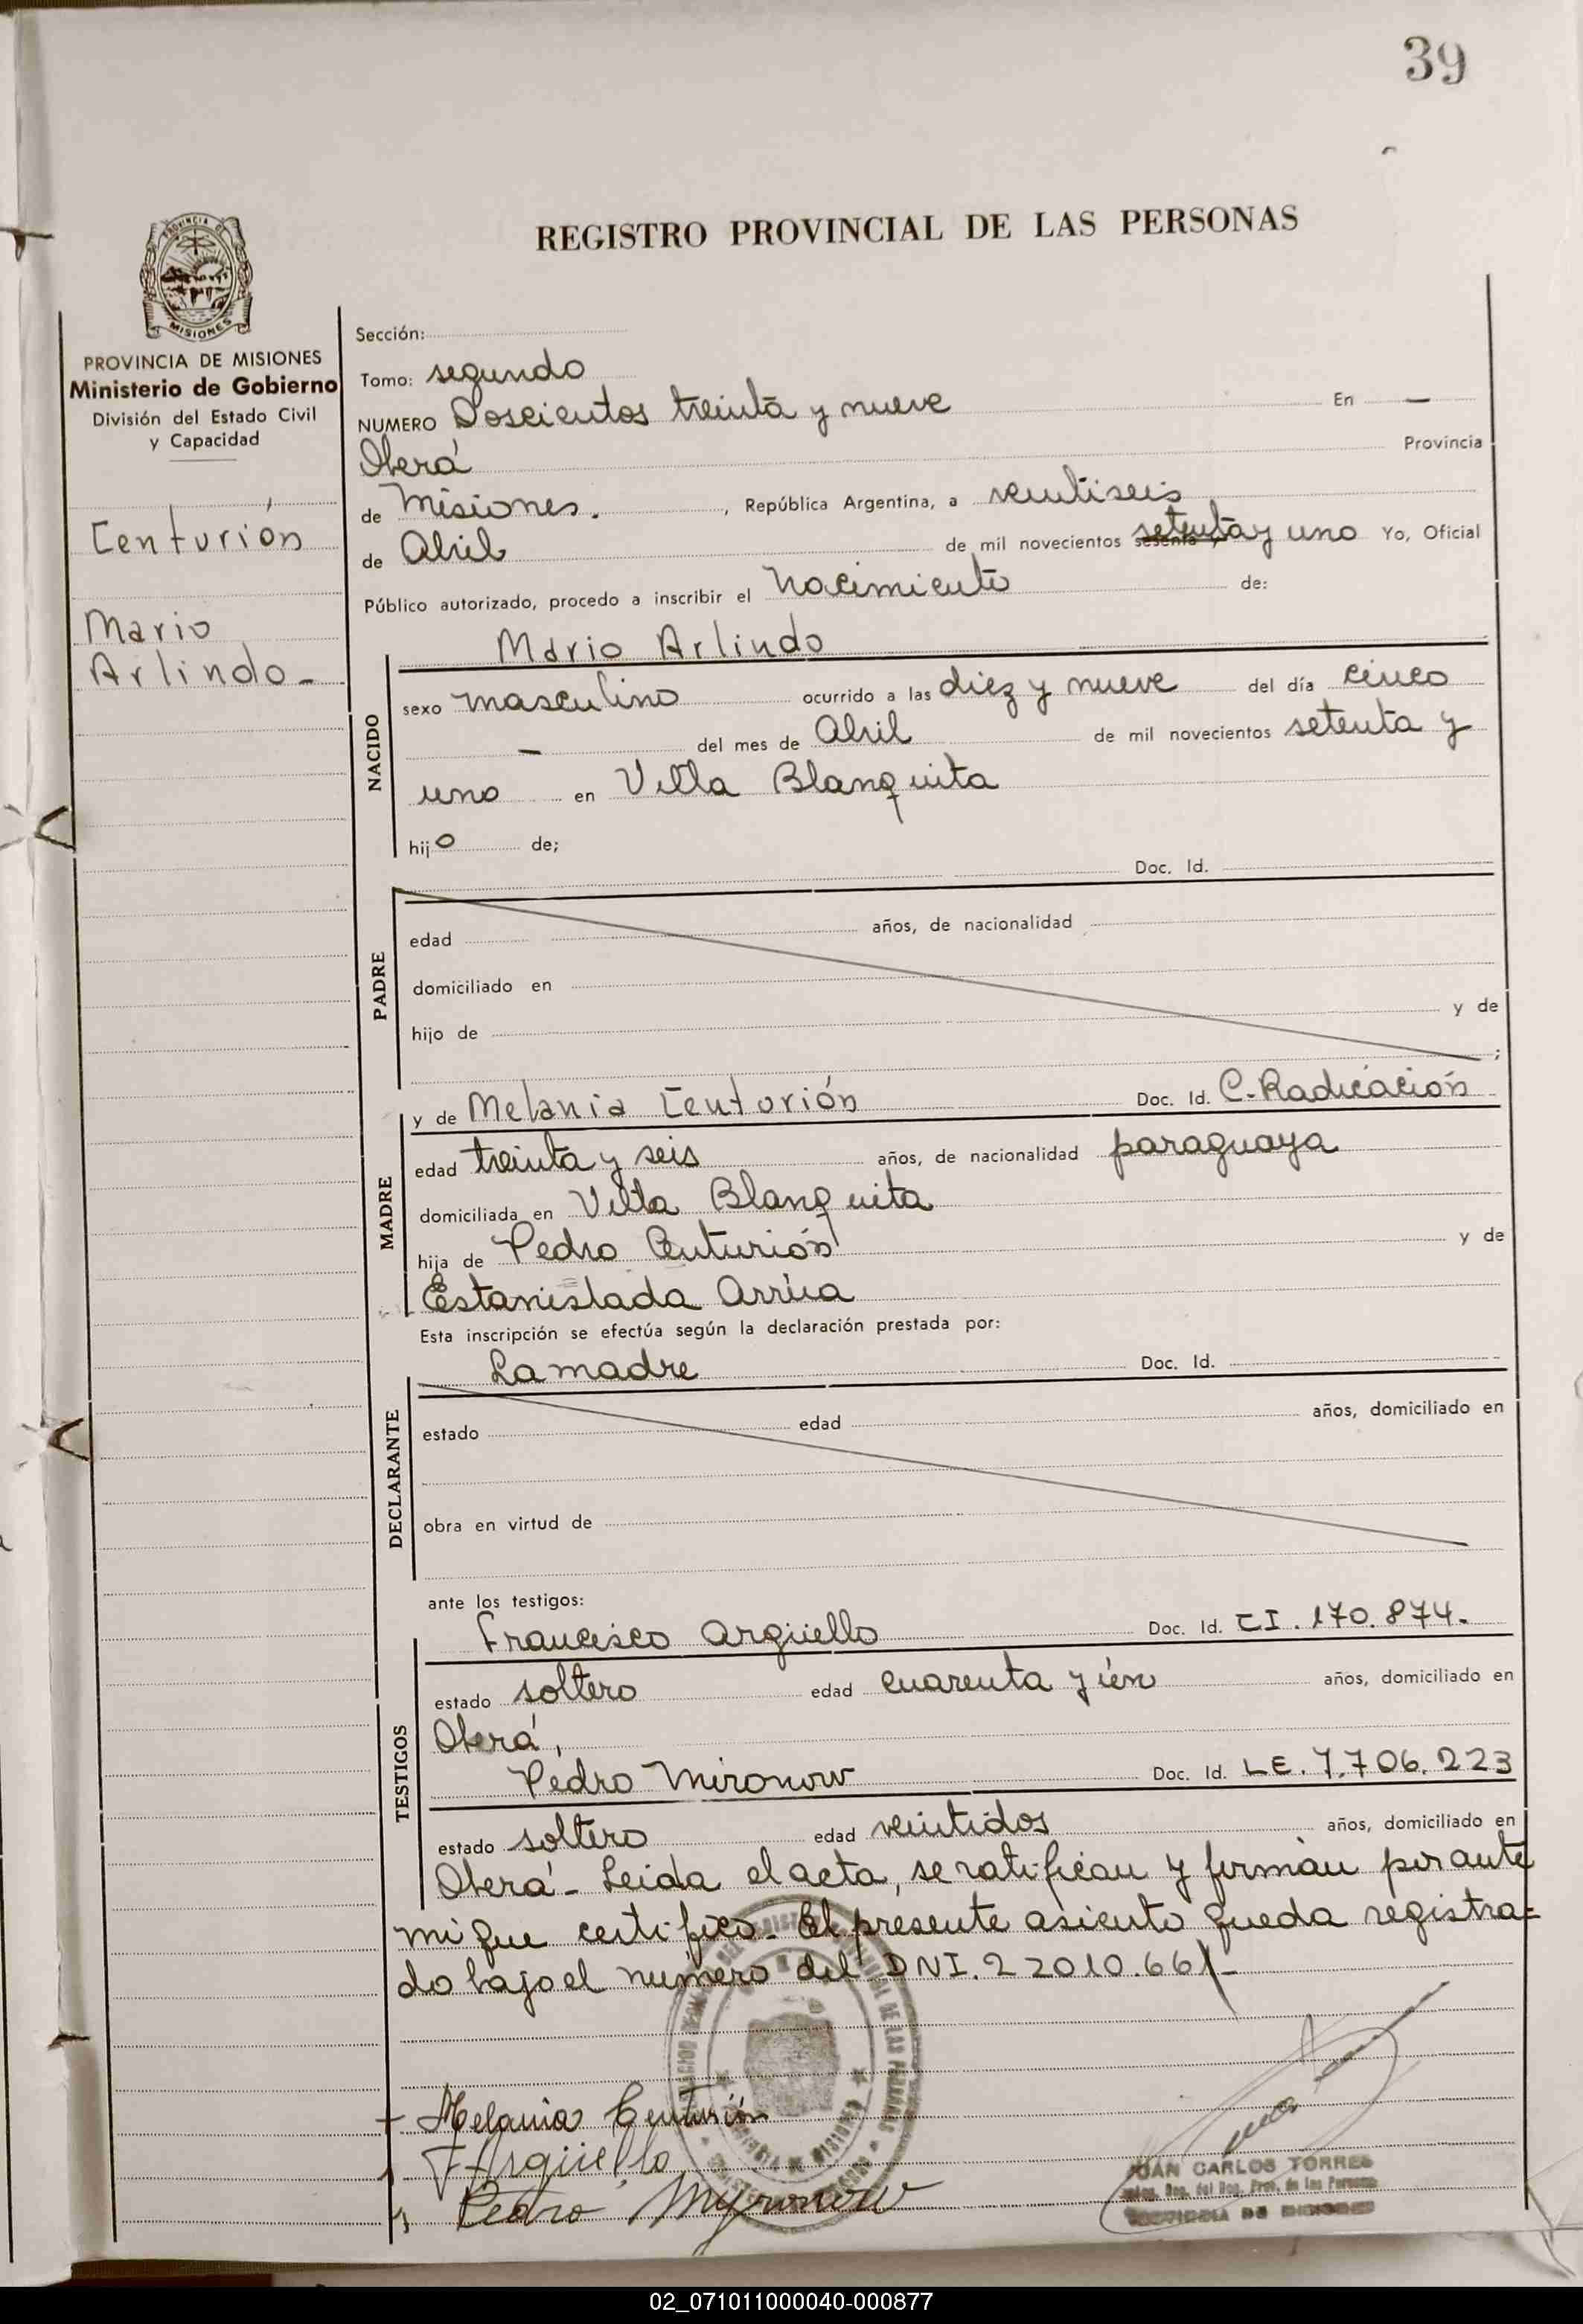 39
REGISTRO PROVINCIAL DE LAS PERSONAS
PROVINCIA
MISIONES
PROVINCIA DE MISIONES
Ministerio de Gobierno
División del Estado Civil
y Capacidad
Centurión
Mario
Arlindo-
Sección:
Tomo: segundo
NUMERO Doscientos treinta y nueve En —
Oberá Provincia
de Misiones. , República Argentina, a veintiseis
de Abril de mil novecientos sesenta y setenta y uno Yo, Oficial
Público autorizado, procedo a inscribir el Nacimiento de:
Mario Arlindo
NACIDO
sexo masculino ocurrido a las diez y nueve del día cinco
— del mes de Abril de mil novecientos setenta y
uno en Villa Blanquita
hijo de;
Doc. Id.
PADRE
edad años, de nacionalidad
domiciliado en
hijo de y de
;
y de Melania Centurión Doc. Id. C. Radicación
MADRE
edad treinta y seis años, de nacionalidad paraguaya
domiciliada en Villa Blanquita
hija de Pedro Centurión y de
Estanislada Arrúa
Esta inscripción se efectúa según la declaración prestada por:
La madre Doc. Id.
DECLARANTE
estado edad años, domiciliado en
obra en virtud de
ante los testigos:
Francisco Argüello Doc. Id. CI. 170.874.
TESTIGOS
estado soltero edad cuarenta y ún años, domiciliado en
Oberá,
Pedro Mironow Doc. Id. LE. 7.706.223
estado soltero edad veintidos años, domiciliado en
Oberá- Leida el acta, se ratifican y firman por ante
mi que certifico. El presente asiento queda registra=
do bajo el número del DNI. 22010.661-
Melania Centurión
F Argüello
Pedro Myronow
JUAN CARLOS TORRES
del Reg. Prov. de las Personas
PROVINCIA DE MISIONES
02_071011000040-000877